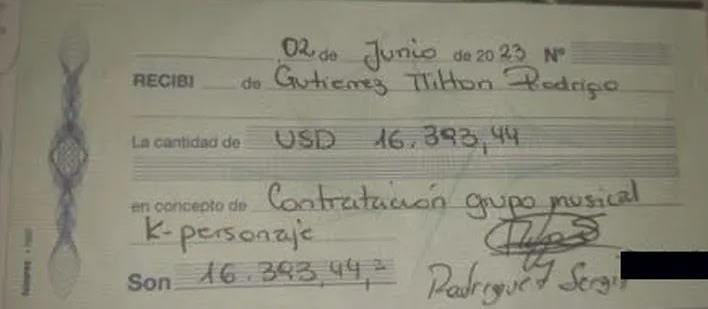 02 de Junio de 2023 Nº
RECIBI de Gutierrez Milton Rodrigo
La cantidad de USD 16.393,44
en concepto de Contratación grupo musical
K-personaje
Son 16.393,44,=
Rodriguez Sergi